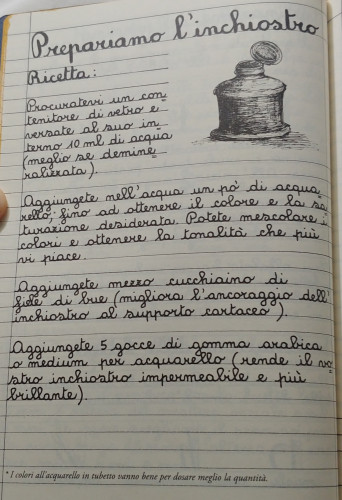 Prepariamo l'inchiostro
Ricetta:
Procuratevi un con=
tenitore di vetro e
versate al suo in=
terno 10 ml di acqua
(meglio se demine=
ralizzata).
Aggiungete nell'acqua un pò di acqua=
rello, fino ad ottenere il colore e la sa=
turazione desiderata. Potete mescolare i
colori e ottenere la tonalità che più
vi piace.
Aggiungete mezzo cucchiaino di
fiele di bue (migliora l'ancoraggio dell'
inchiostro al supporto cartaceo).
Aggiungete 5 gocce di gomma arabica
o medium per acquarello (rende il vo=
stro inchiostro impermeabile e più
brillante).
* I colori all'acquarello in tubetto vanno bene per dosare meglio la quantità.